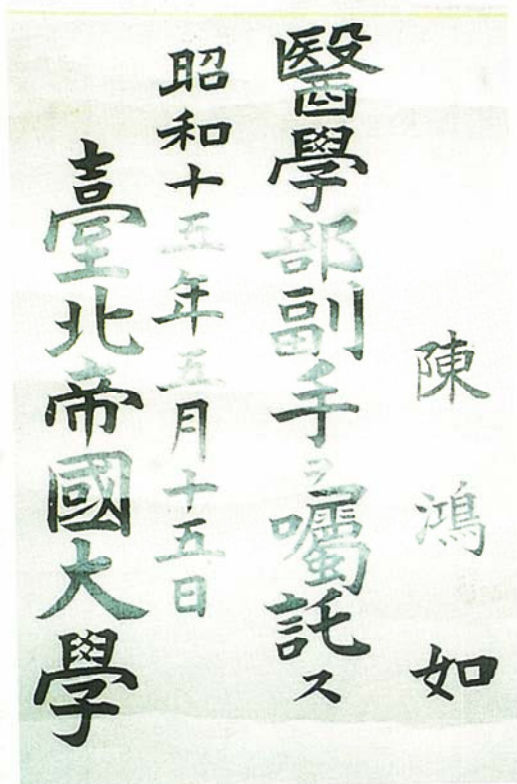 陳鴻如
醫學部副手ヲ囑託ス
昭和十五年五月十五日
臺北帝國大學